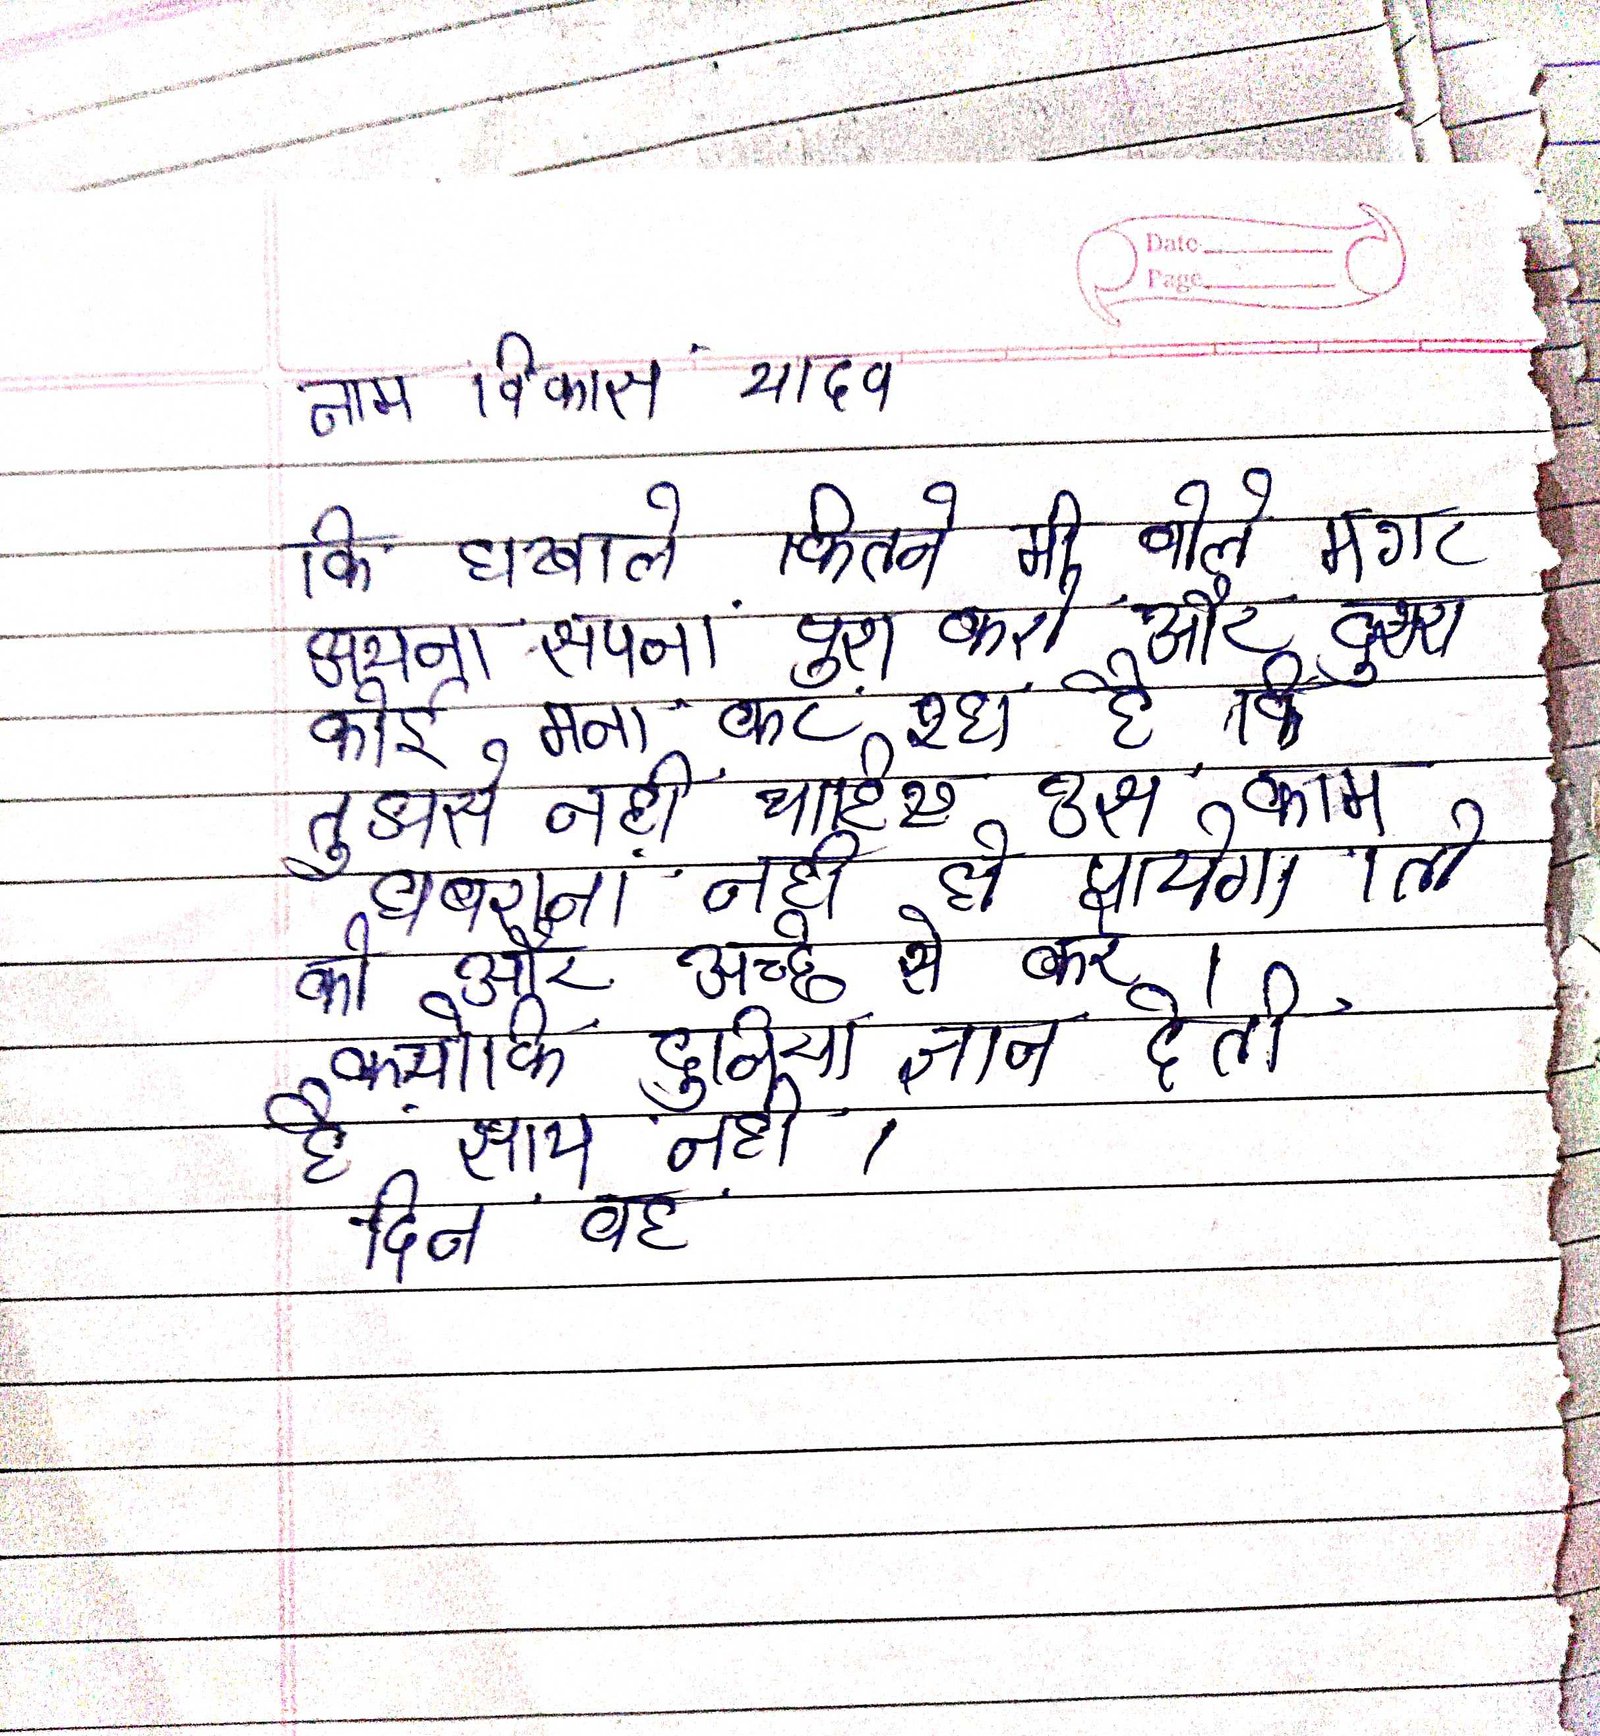 Date
Page
नाम विकास यादव
कि घरवाले कितने भी बोले मगर
अपना सपना पुरा करो और दुसरा
कोई मना कर रहा है कि
तुझसे नही चाहिए उस काम
घबराना नही हो पायेगा । तो
को और अच्छे से कर ।
क्योकि दुनिया ज्ञान देती
है साथ नही ।
दिन वह